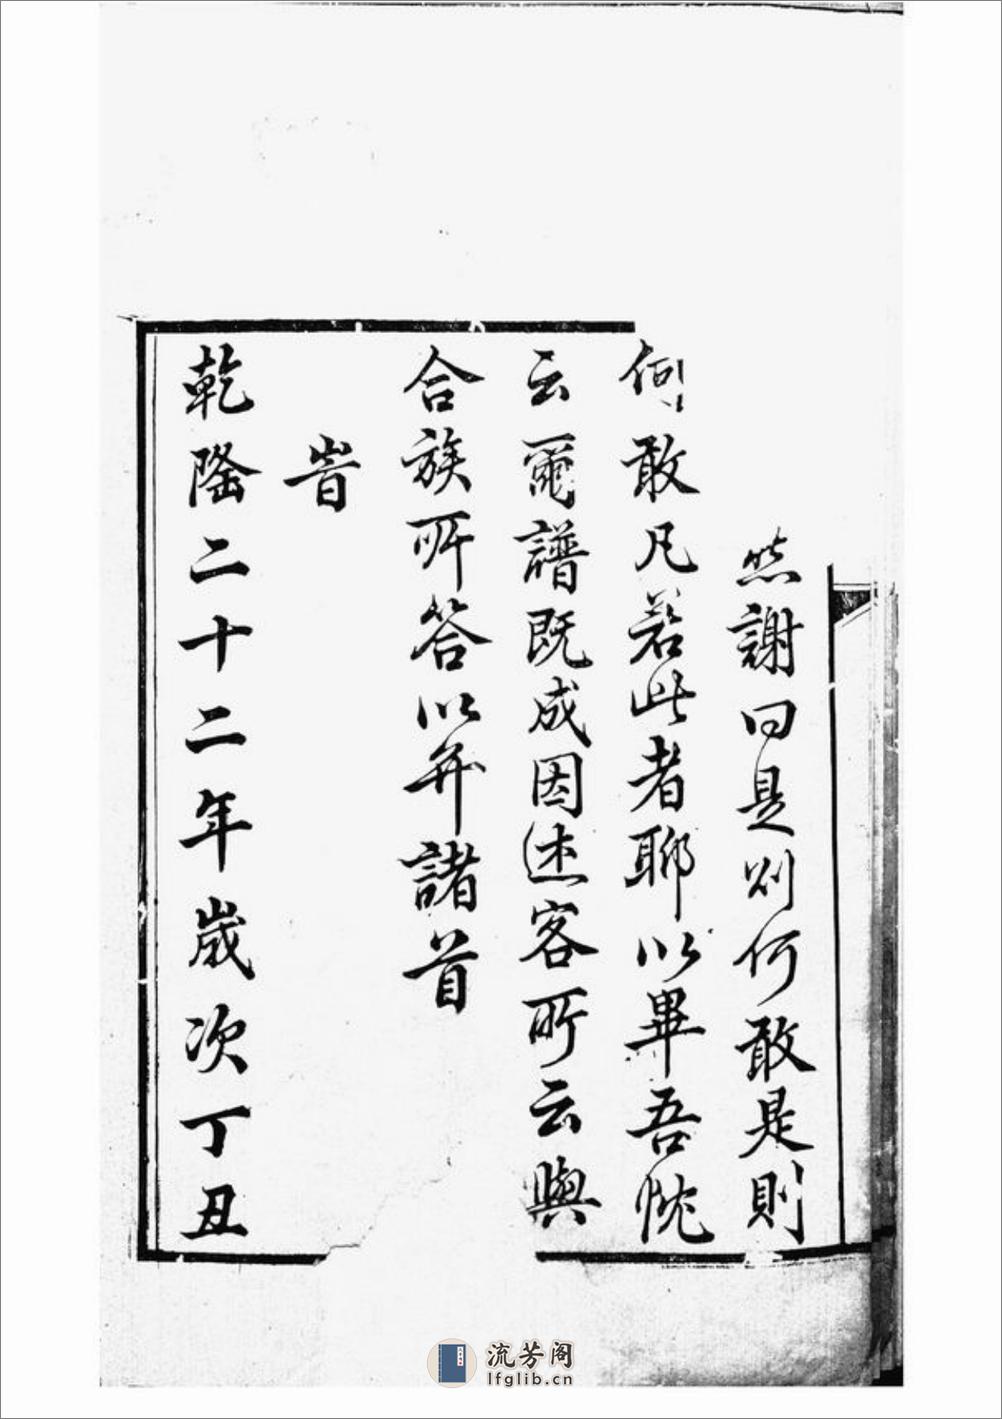 然謝曰是則何敢是則
何敢凡若此者聊以畢吾忱
云爾譜既成因述客所云與
合族所答以弁諸首
旹
乾隆二十二年歲次丁丑
流芳阁
lfglib.cn